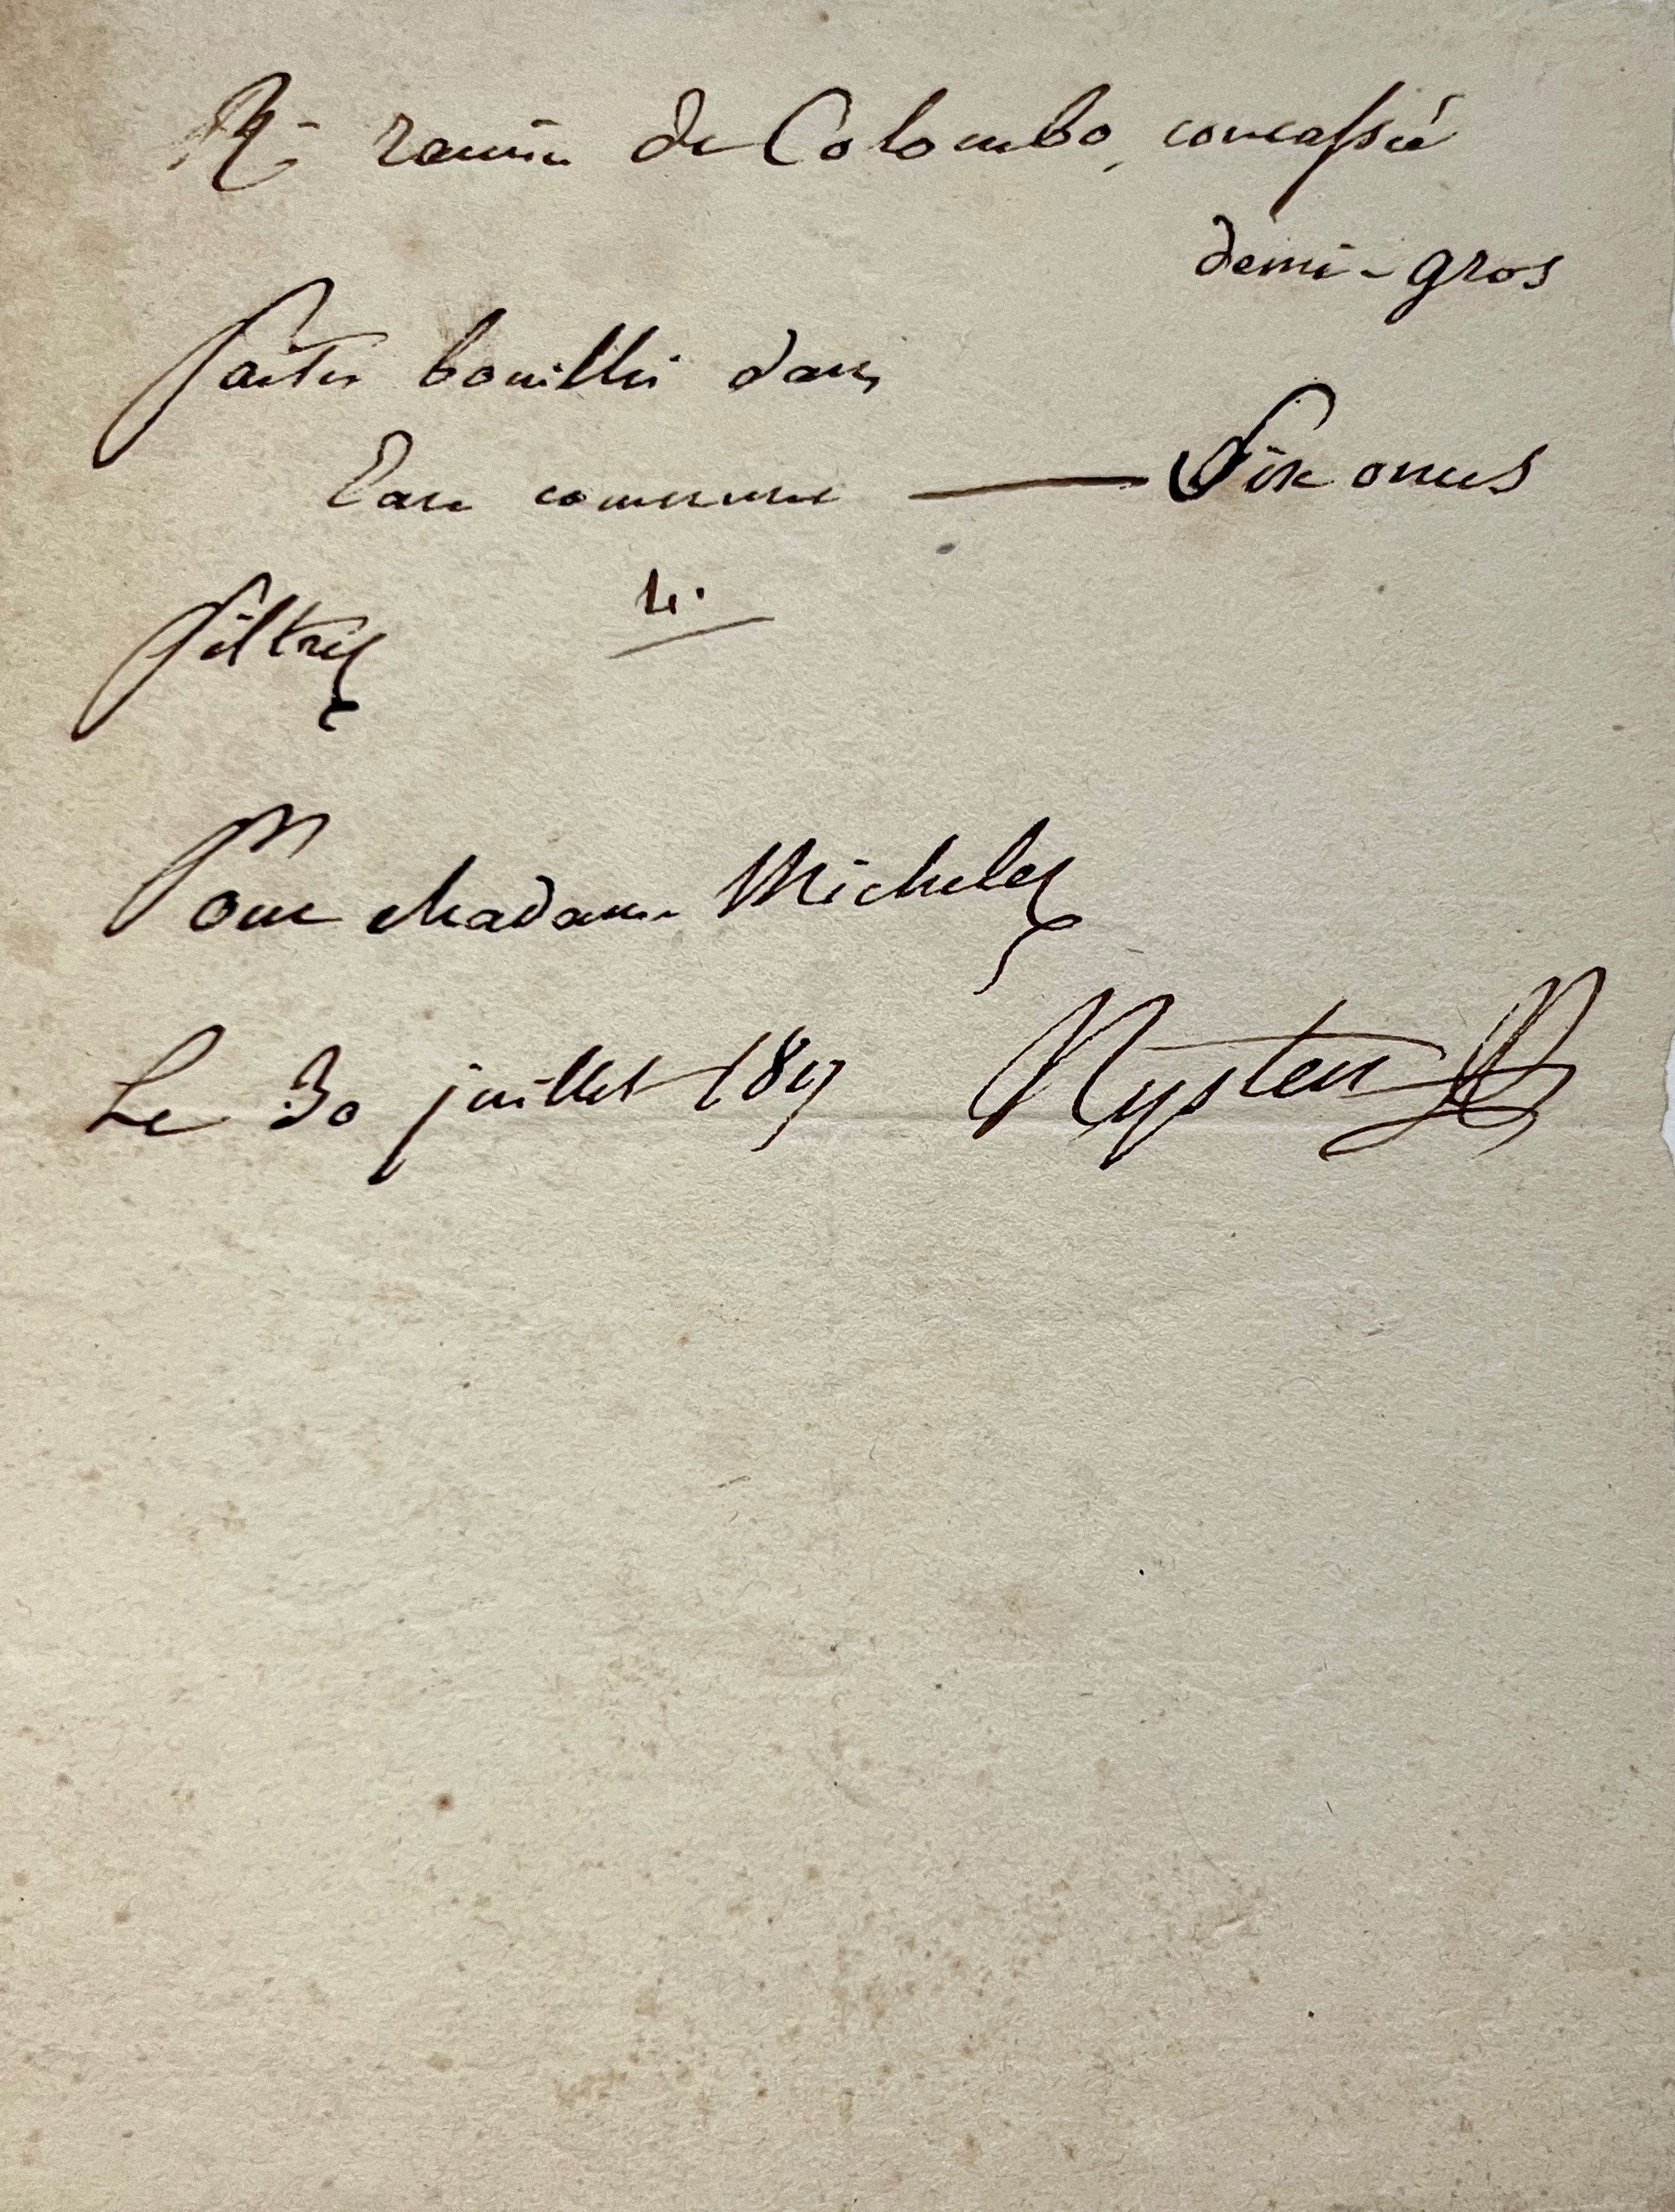 R. racine de Colombo, concassée
demi-gros
faites bouillir dans
Eau commune — Six onces
filtrez
Pour Madame Michelez
Le 30 juillet 1817 Nysten